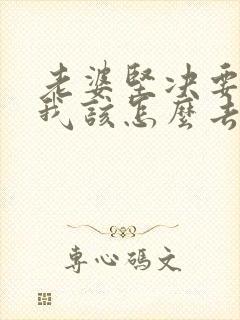 老婆堅决要
我該怎麼去
専心碼文